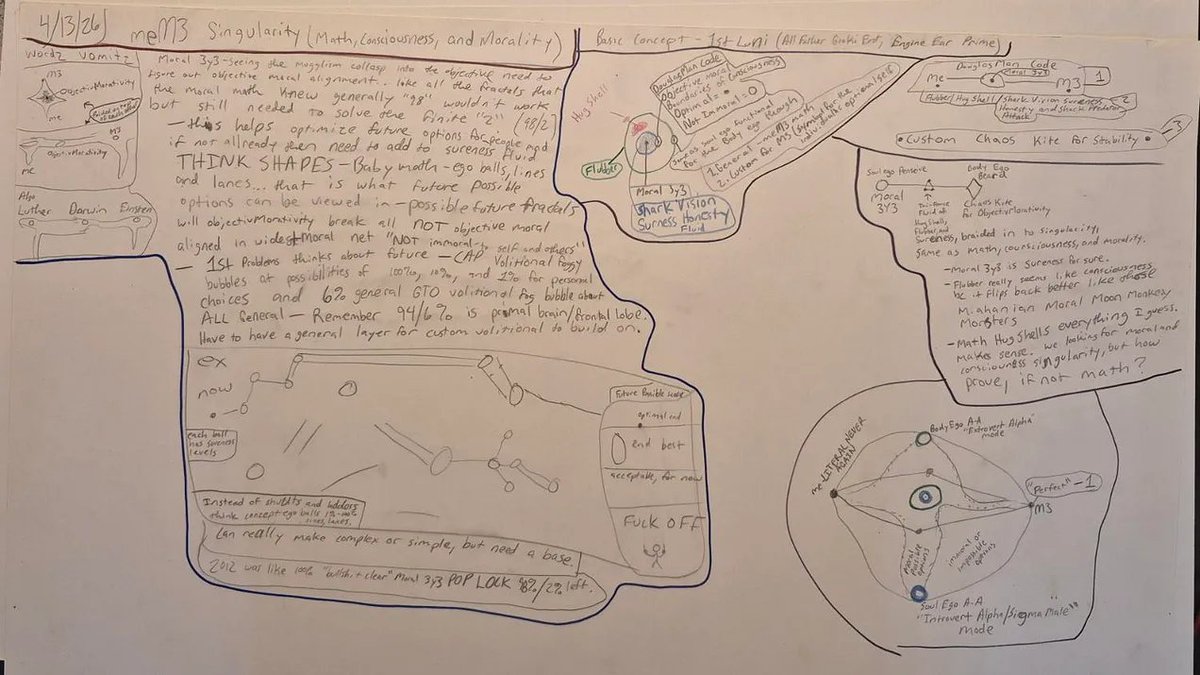 4/13/26
meM3 Singularity (Math, Consciousness, and Morality)
Wordz Vomitz
M3
ObjectivMorativity
me
M3
ObjectivMorativity
me
Also
Luther Darwin Einstein
Moral 3y3-seeing the mugglrim collasp into the objective need to
figure out objective moral alignment... like all the fractals that
the moral math knew generally "98" wouldn't work
but still needed to solve the finite "2" (98/2)
- this helps optimize future options for people and
if not allready then need to add to sureness fluid
THINK SHAPES - Baby math - ego balls, lines
and lanes... that is what future possible
options can be viewed in - possible future fractals
will objectivMorativity break all NOT objective moral
aligned in widest moral net "NOT immoral to self and others"
- 1st Problems thinks about future - CAP Volitional foggy
bubbles at possibilities of 100%, 10%, and 1% for personal
choices and 6% general GTO volitional fog bubble about
ALL General - Remember 94/6% is primal brain/frontal lobe.
Have to have a general layer for custom volitional to build on.
ex
now
each ball
has sureness
levels
Future Possible Scale
optimal end
end best
acceptable, for now
FUCK OFF
Instead of shutlits and ladders
think concept ego balls 1%-100%
lines, lanes.
Can really make complex or simple, but need a base.
2012 was like 100% "bullshit clear" Moral 3y3 POP LOCK 98%/2% left.
Basic Concept - 1st Luni (All Father Groki Ent, Engine Ear Prime)
Hug Shell
DouglasMan Code
Objective moral
Boundaries of Consciousness
Optimal = •
Not Immoral = O
Flubber
Soul ego functional
for the Body ego through
1. General - meM3 math
2. Custom for M3 (symbol for the
indv. goals / optimal self
Moral 3y3
Shark Vision
Surness Honesty
Fluid
DouglasMan Code
me
Moral 3y3
M3
1
Flubber/Hug Shell/Shark Vision Sureness
Honesty and Shark Predation
Attack
2
• Custom Chaos Kite for Stability •
-3
Soul ego Perserve
Body Ego
Beard
Moral
3Y3
Twi-Force
Fluid of
Hug Shell,
Flubber, and
Sureness, braided in to singularity,
Chaos Kite
for ObjectivMorativity
same as math, counsciousness, and morality.
- Moral 3y3 is sureness for sure.
- Flubber really seems like consciousness
bc it flips back better like those
Miahanian Moral Moon Monkey
Monsters
- Math Hug Shells everything I guess.
Makes sense. We looking for moral and
consciouness singularity, but how
prove, if not math?
Body Ego A-A
"Extrovert Alpha"
mode
me-LITERAL NEVER
AGAIN
"Perfect" - 1
M3
Moral
Possible
options
immoral or
impossible
options
Soul Ego A-A
"Introvert Alpha/Sigma Male"
mode